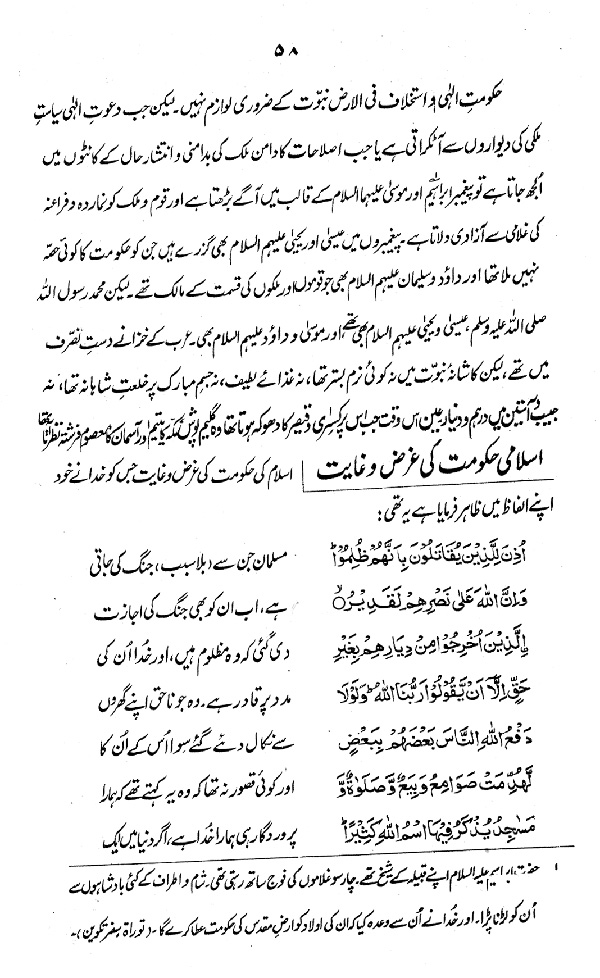 ۵۸
حکومتِ الٰہی و استخلاف فی الارض نبوّت کے ضروری لوازم نہیں۔ لیکن جب دعوتِ الٰہی سیاستِ
ملکی کی دیواروں سے آٹکراتی ہے یا جب اصلاحات کا دامن ملک کی بدامنی و انتشارِ حال کے کانٹوں میں
اُلجھ جاتا ہے تو پیغمبر ابراہیمؑ اور موسیٰ علیہما السلام کے قالب میں آگے بڑھتا ہے اور قوم و ملک کو نمارِدہ و فراعنہ
کی غلامی سے آزادی دلاتا ہے۔ پیغمبروں میں عیسیٰ اور یحییٰ علیہم السلام بھی گزرے ہیں جن کو حکومت کا کوئی حصّہ
نہیں ملا تھا اور داؤد و سلیمان علیہم السلام بھی جو قوموں اور ملکوں کی قسمت کے مالک تھے۔ لیکن محمد رسول اللہ
صلی اللہ علیہ وسلم، عیسیٰ و یحییٰ علیہم السلام بھی تھے اور موسیٰ و داؤد علیہم السلام بھی۔ عرب کے خزانے دستِ تصرّف
میں تھے، لیکن کاشانۂ نبوّت میں نہ کوئی نرم بستر تھا، نہ غذائے لطیف، نہ جسمِ مبارک پر خلعتِ شاہانہ تھا، نہ
جیب و آستین میں درہم و دینار، عین اس وقت جب اس پر کسریٰ و قیصر کا دھوکہ ہوتا تھا وہ گلیم پوش مکہ کا یتیم اور آسمان کا معصوم فرشتہ نظر آتا تھا
اسلامی حکومت کی غرض و غایت
اسلام کی حکومت کی غرض و غایت جس کو خدا نے خود
اپنے الفاظ میں ظاہر فرمایا ہے یہ تھی:
اُذِنَ لِلَّذِیْنَ یُقَاتَلُوْنَ بِاَنَّھُمْ ظُلِمُوْاؕ
وَاِنَّ اللّٰہَ عَلٰی نَصْرِھِمْ لَقَدِیْرُ ○
اِلَّذِیْنَ اُخْرِجُوْا مِنْ دِیَارِھِمْ بِغَیْرِ
حَقٍّ اِلَّا اَنْ یَّقُوْلُوْا رَبُّنَا اللّٰہُ ؕ وَلَوْلَا
دَفْعُ اللّٰہِ النَّاسَ بَعْضَھُمْ بِبَعْضٍ
لَّھُدِّمَتْ صَوَامِعُ وَبِیَعٌ وَّصَلَوٰتٌ وَّ
مَسٰجِدُ یُذْکَرُ فِیْھَا اسْمُ اللّٰہِ کَثِیْرًاؕ
مسلمان جن سے (بلا سبب) جنگ کی جاتی
ہے، اب ان کو بھی جنگ کی اجازت
دی گئی کہ وہ مظلوم ہیں، اور خدا اُن کی
مدد پر قادر ہے۔ وہ جو ناحق اپنے گھروں
سے نکال دیئے گئے سوا اس کے اُن کا
اور کوئی قصور نہ تھا کہ وہ یہ کہتے تھے کہ ہمارا
پروردگار ہی ہمارا خدا ہے، اگر دنیا میں ایک
۱ حضرت ابراہیم علیہ السلام اپنے قبیلہ کے شیخ تھے۔ چار سو غلاموں کی فوج ساتھ رہتی تھی۔ شام و اطراف کے کئی بادشاہوں سے
اُن کو لڑنا پڑا۔ اور خدا نے اُن سے وعدہ کیا کہ ان کی اولاد کو ارضِ مقدس کی حکومت عطا کرے گا۔ (توراۃ سفر تکوین)۔